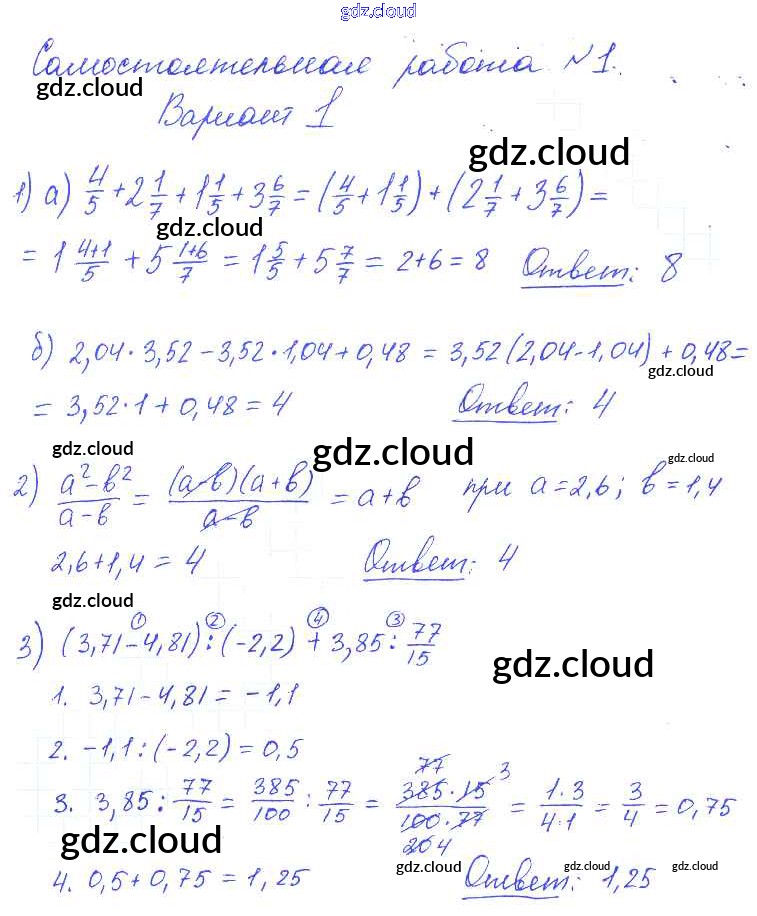 gdz.cloud
Самостоятельная работа №1.
gdz.cloud
Вариант 1
gdz.cloud
1) а) 4/5 + 2 1/7 + 1 1/5 + 3 6/7 = (4/5 + 1 1/5) + (2 1/7 + 3 6/7) =
gdz.cloud
= 1 (4+1)/5 + 5 (1+6)/7 = 1 5/5 + 5 7/7 = 2+6 = 8 Ответ: 8
б) 2,04 · 3,52 - 3,52 · 1,04 + 0,48 = 3,52(2,04 - 1,04) + 0,48 =
gdz.cloud
= 3,52 · 1 + 0,48 = 4 Ответ: 4
gdz.cloud gdz.cloud gdz.cloud
2) (a² - b²)/(a - b) = (a-b)(a+b)/(a-b) = a+b при a=2,6; b=1,4
2,6+1,4 = 4 Ответ: 4
gdz.cloud
① ② ④ ③
3) (3,71 - 4,81) : (-2,2) + 3,85 : 77/15
gdz.cloud
1. 3,71 - 4,81 = -1,1
2. -1,1 : (-2,2) = 0,5
77 3
3. 3,85 : 77/15 = 385/100 : 77/15 = (385 · 15)/(100 · 77) = (1·3)/(4·1) = 3/4 = 0,75
20 4
gdz.cloud gdz.cloud gdz.cloud gdz.cloud
4. 0,5 + 0,75 = 1,25 Ответ: 1,25